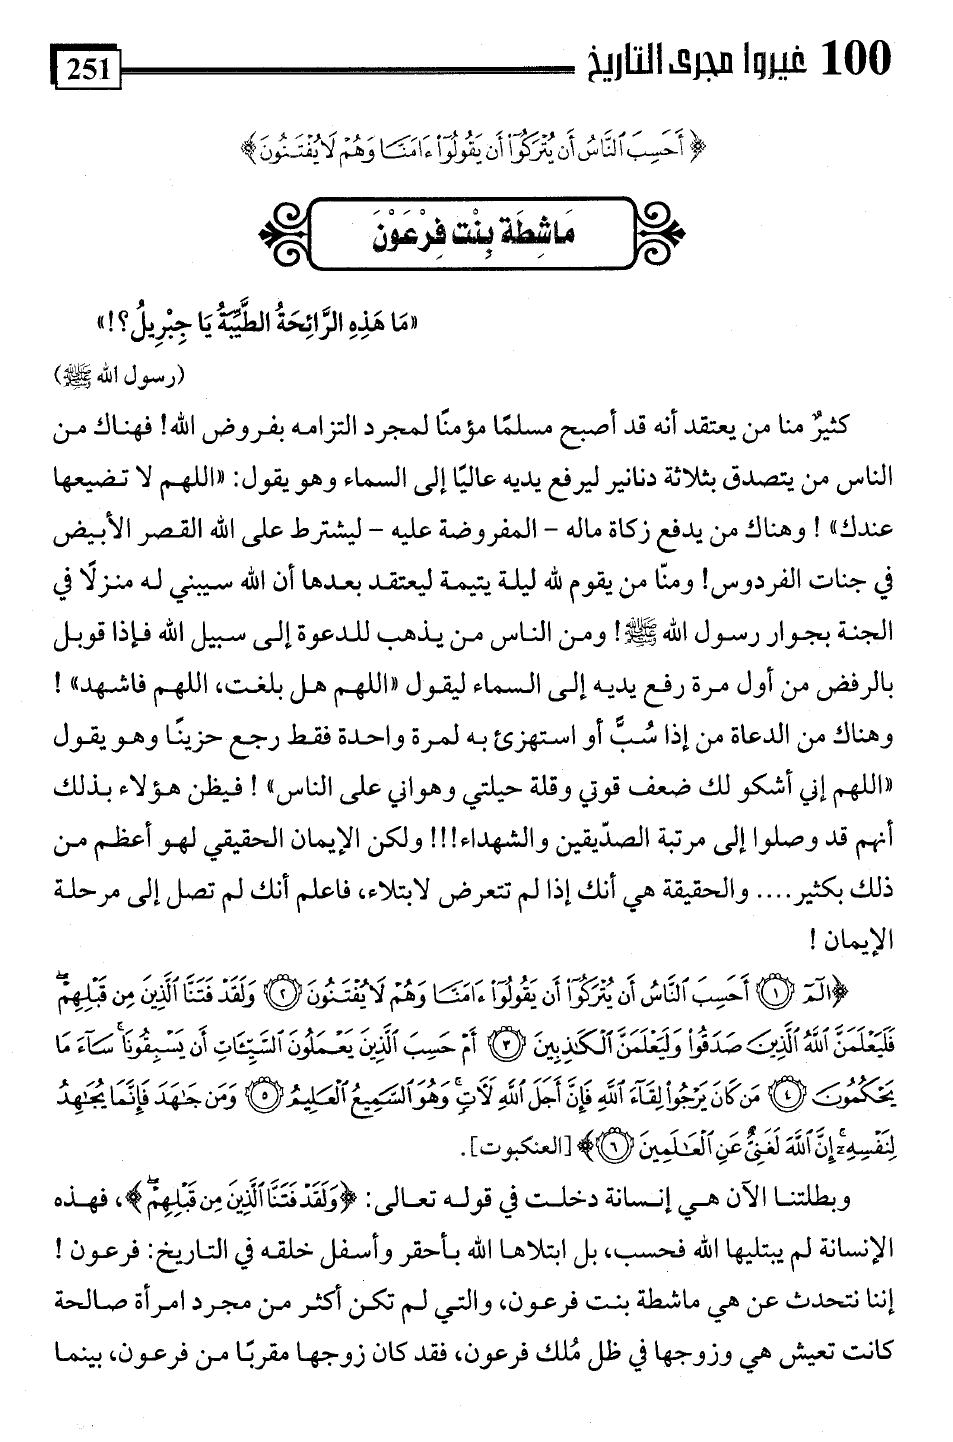 100 غيروا مجرى التاريخ
251
﴿ أَحَسِبَ ٱلنَّاسُ أَن يُتْرَكُوٓا۟ أَن يَقُولُوٓا۟ ءَامَنَّا وَهُمْ لَا يُفْتَنُونَ ﴾
مَاشِطَة بِنْت فِرْعَوْنَ
«مَا هَذِهِ الرَّائِحَةُ الطَّيِّبَةُ يَا جِبْرِيلُ؟!»
(رسول الله ﷺ)
كثيرٌ منا من يعتقد أنه قد أصبح مسلمًا مؤمنًا لمجرد التزامه بفروض الله! فهناك من
الناس من يتصدق بثلاثة دنانير ليرفع يديه عاليًا إلى السماء وهو يقول: «اللهم لا تضيعها
عندك» ! وهناك من يدفع زكاة ماله - المفروضة عليه - ليشترط على الله القصر الأبيض
في جنات الفردوس! ومنّا من يقوم لله ليلة يتيمة ليعتقد بعدها أن الله سيبني له منزلًا في
الجنة بجوار رسول الله ﷺ! ومن الناس من يذهب للدعوة إلى سبيل الله فإذا قوبل
بالرفض من أول مرة رفع يديه إلى السماء ليقول «اللهم هل بلغت، اللهم فاشهد» !
وهناك من الدعاة من إذا سُبَّ أو استهزئ به لمرة واحدة فقط رجع حزينًا وهو يقول
«اللهم إني أشكو لك ضعف قوتي وقلة حيلتي وهواني على الناس» ! فيظن هؤلاء بذلك
أنهم قد وصلوا إلى مرتبة الصدّيقين والشهداء!!! ولكن الإيمان الحقيقي لهو أعظم من
ذلك بكثير.... والحقيقة هي أنك إذا لم تتعرض لابتلاء، فاعلم أنك لم تصل إلى مرحلة
الإيمان !
﴿الٓمٓ ۝١ أَحَسِبَ ٱلنَّاسُ أَن يُتْرَكُوٓا۟ أَن يَقُولُوٓا۟ ءَامَنَّا وَهُمْ لَا يُفْتَنُونَ ۝٢ وَلَقَدْ فَتَنَّا ٱلَّذِينَ مِن قَبْلِهِمْ ۖ
فَلَيَعْلَمَنَّ ٱللَّهُ ٱلَّذِينَ صَدَقُوا۟ وَلَيَعْلَمَنَّ ٱلْكَٰذِبِينَ ۝٣ أَمْ حَسِبَ ٱلَّذِينَ يَعْمَلُونَ ٱلسَّيِّـَٔاتِ أَن يَسْبِقُونَا ۚ سَآءَ مَا
يَحْكُمُونَ ۝٤ مَن كَانَ يَرْجُوا۟ لِقَآءَ ٱللَّهِ فَإِنَّ أَجَلَ ٱللَّهِ لَءَاتٍ ۚ وَهُوَ ٱلسَّمِيعُ ٱلْعَلِيمُ ۝٥ وَمَن جَٰهَدَ فَإِنَّمَا يُجَٰهِدُ
لِنَفْسِهِۦٓ ۚ إِنَّ ٱللَّهَ لَغَنِىٌّ عَنِ ٱلْعَٰلَمِينَ ۝٦﴾ [العنكبوت].
وبطلتنا الآن هي إنسانة دخلت في قوله تعالى: ﴿وَلَقَدْ فَتَنَّا ٱلَّذِينَ مِن قَبْلِهِمْ ۖ﴾، فهذه
الإنسانة لم يبتليها الله فحسب، بل ابتلاها الله بأحقر وأسفل خلقه في التاريخ: فرعون !
إننا نتحدث عن هي ماشطة بنت فرعون، والتي لم تكن أكثر من مجرد امرأة صالحة
كانت تعيش هي وزوجها في ظل مُلك فرعون، فقد كان زوجها مقربًا من فرعون، بينما